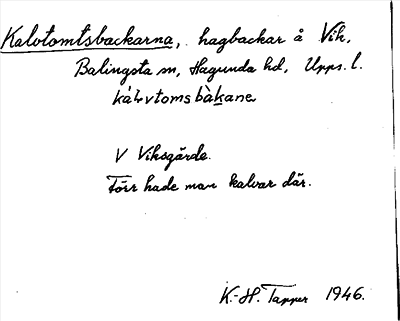 Kalvtomtsbackarna, hagbackar å Vik,
Balingsta sn, Hagunda hd, Upps. l.
kálvtomsbàkane
V Viksgärde.
Förr hade man kalvar där.
K.-H. Tapper 1946.